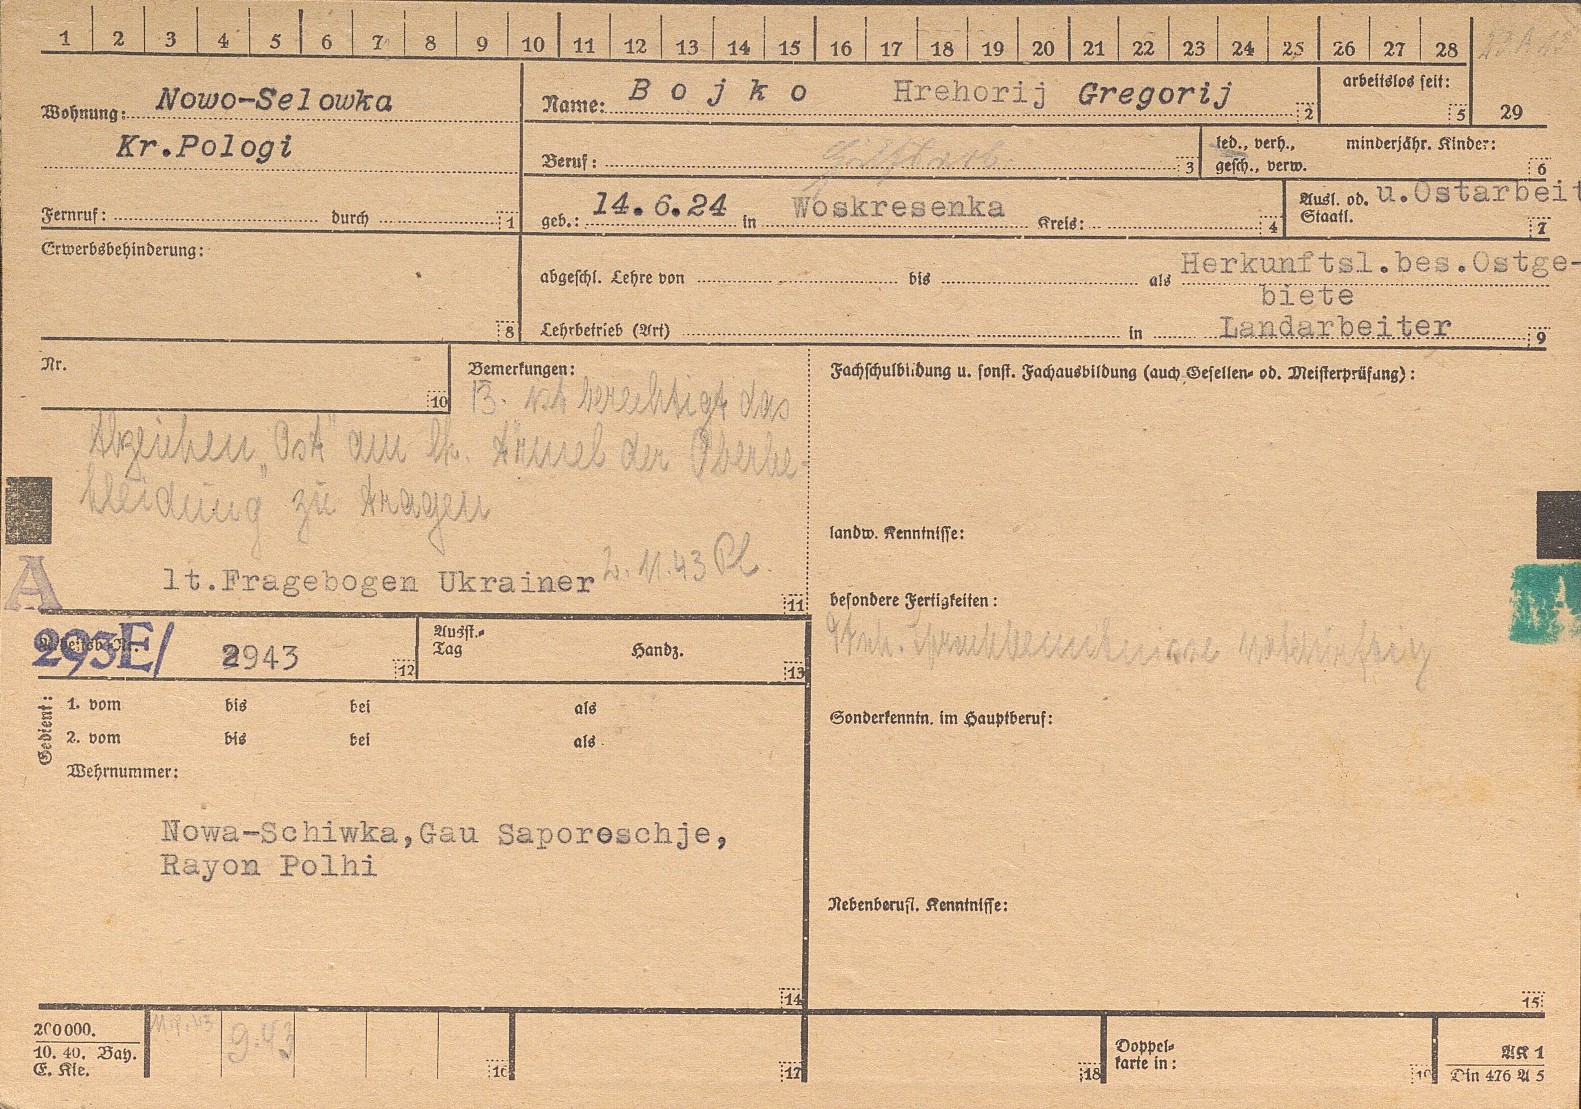 1 2 3 4 5 6 7 8 9 10 11 12 13 14 15 16 17 18 19 20 21 22 23 24 25 26 27 28
Wohnung: Nowo-Selowka
Kr.Pologi
Fernruf: durch 1
Name: Bojko Hrehorij Gregorij 2
arbeitslos seit: 5
29
Beruf: 3
led., verh., gesch., verw.
minderjähr. Kinder: 6
geb.: 14.6.24 in Woskresenka Kreis: 4
Ausl. od. Staatl. u.Ostarbeit 7
Erwerbsbehinderung: 8
abgeschl. Lehre von bis als Herkunftsl.bes.Ostge-
biete
Lehrbetrieb (Art) in Landarbeiter 9
Nr. 10
Bemerkungen:
B. ist berechtigt das
Abzeichen „Ost" am lk. Ärmel der Oberbe-
kleidung zu tragen
lt.Fragebogen Ukrainer 2.11.43 Pl. 11
A
Arbeitsb.-Nr.
293E/ 2943 12
Ausst.-
Tag Handz. 13
Gedient:
1. vom bis bei als
2. vom bis bei als
Wehrnummer:
Nowa-Schiwka,Gau Saporoschje,
Rayon Polhi
14
Fachschulbildung u. sonst. Fachausbildung (auch Gesellen- od. Meisterprüfung):
landw. Kenntnisse:
besondere Fertigkeiten:
Sonderkenntn. im Hauptberuf:
Nebenberufl. Kenntnisse:
15
200000.
10. 40. Bay.
E. Kle.
9.43
16 17 18
Doppel-
karte in: 19
AK 1
Din 476 A 5